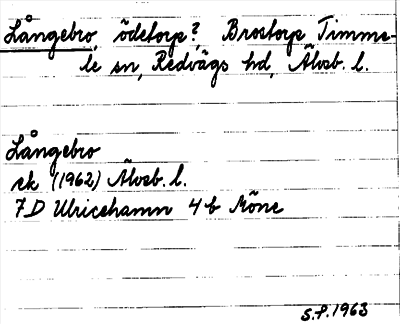 Långebro, ödetorp?, Brostorp Timme-
le sn, Redvägs hd, Älvsb. l.
Långebro
ek (1962) Älvsb. l.
7D Ulricehamn 4b Möne
S.P. 1963